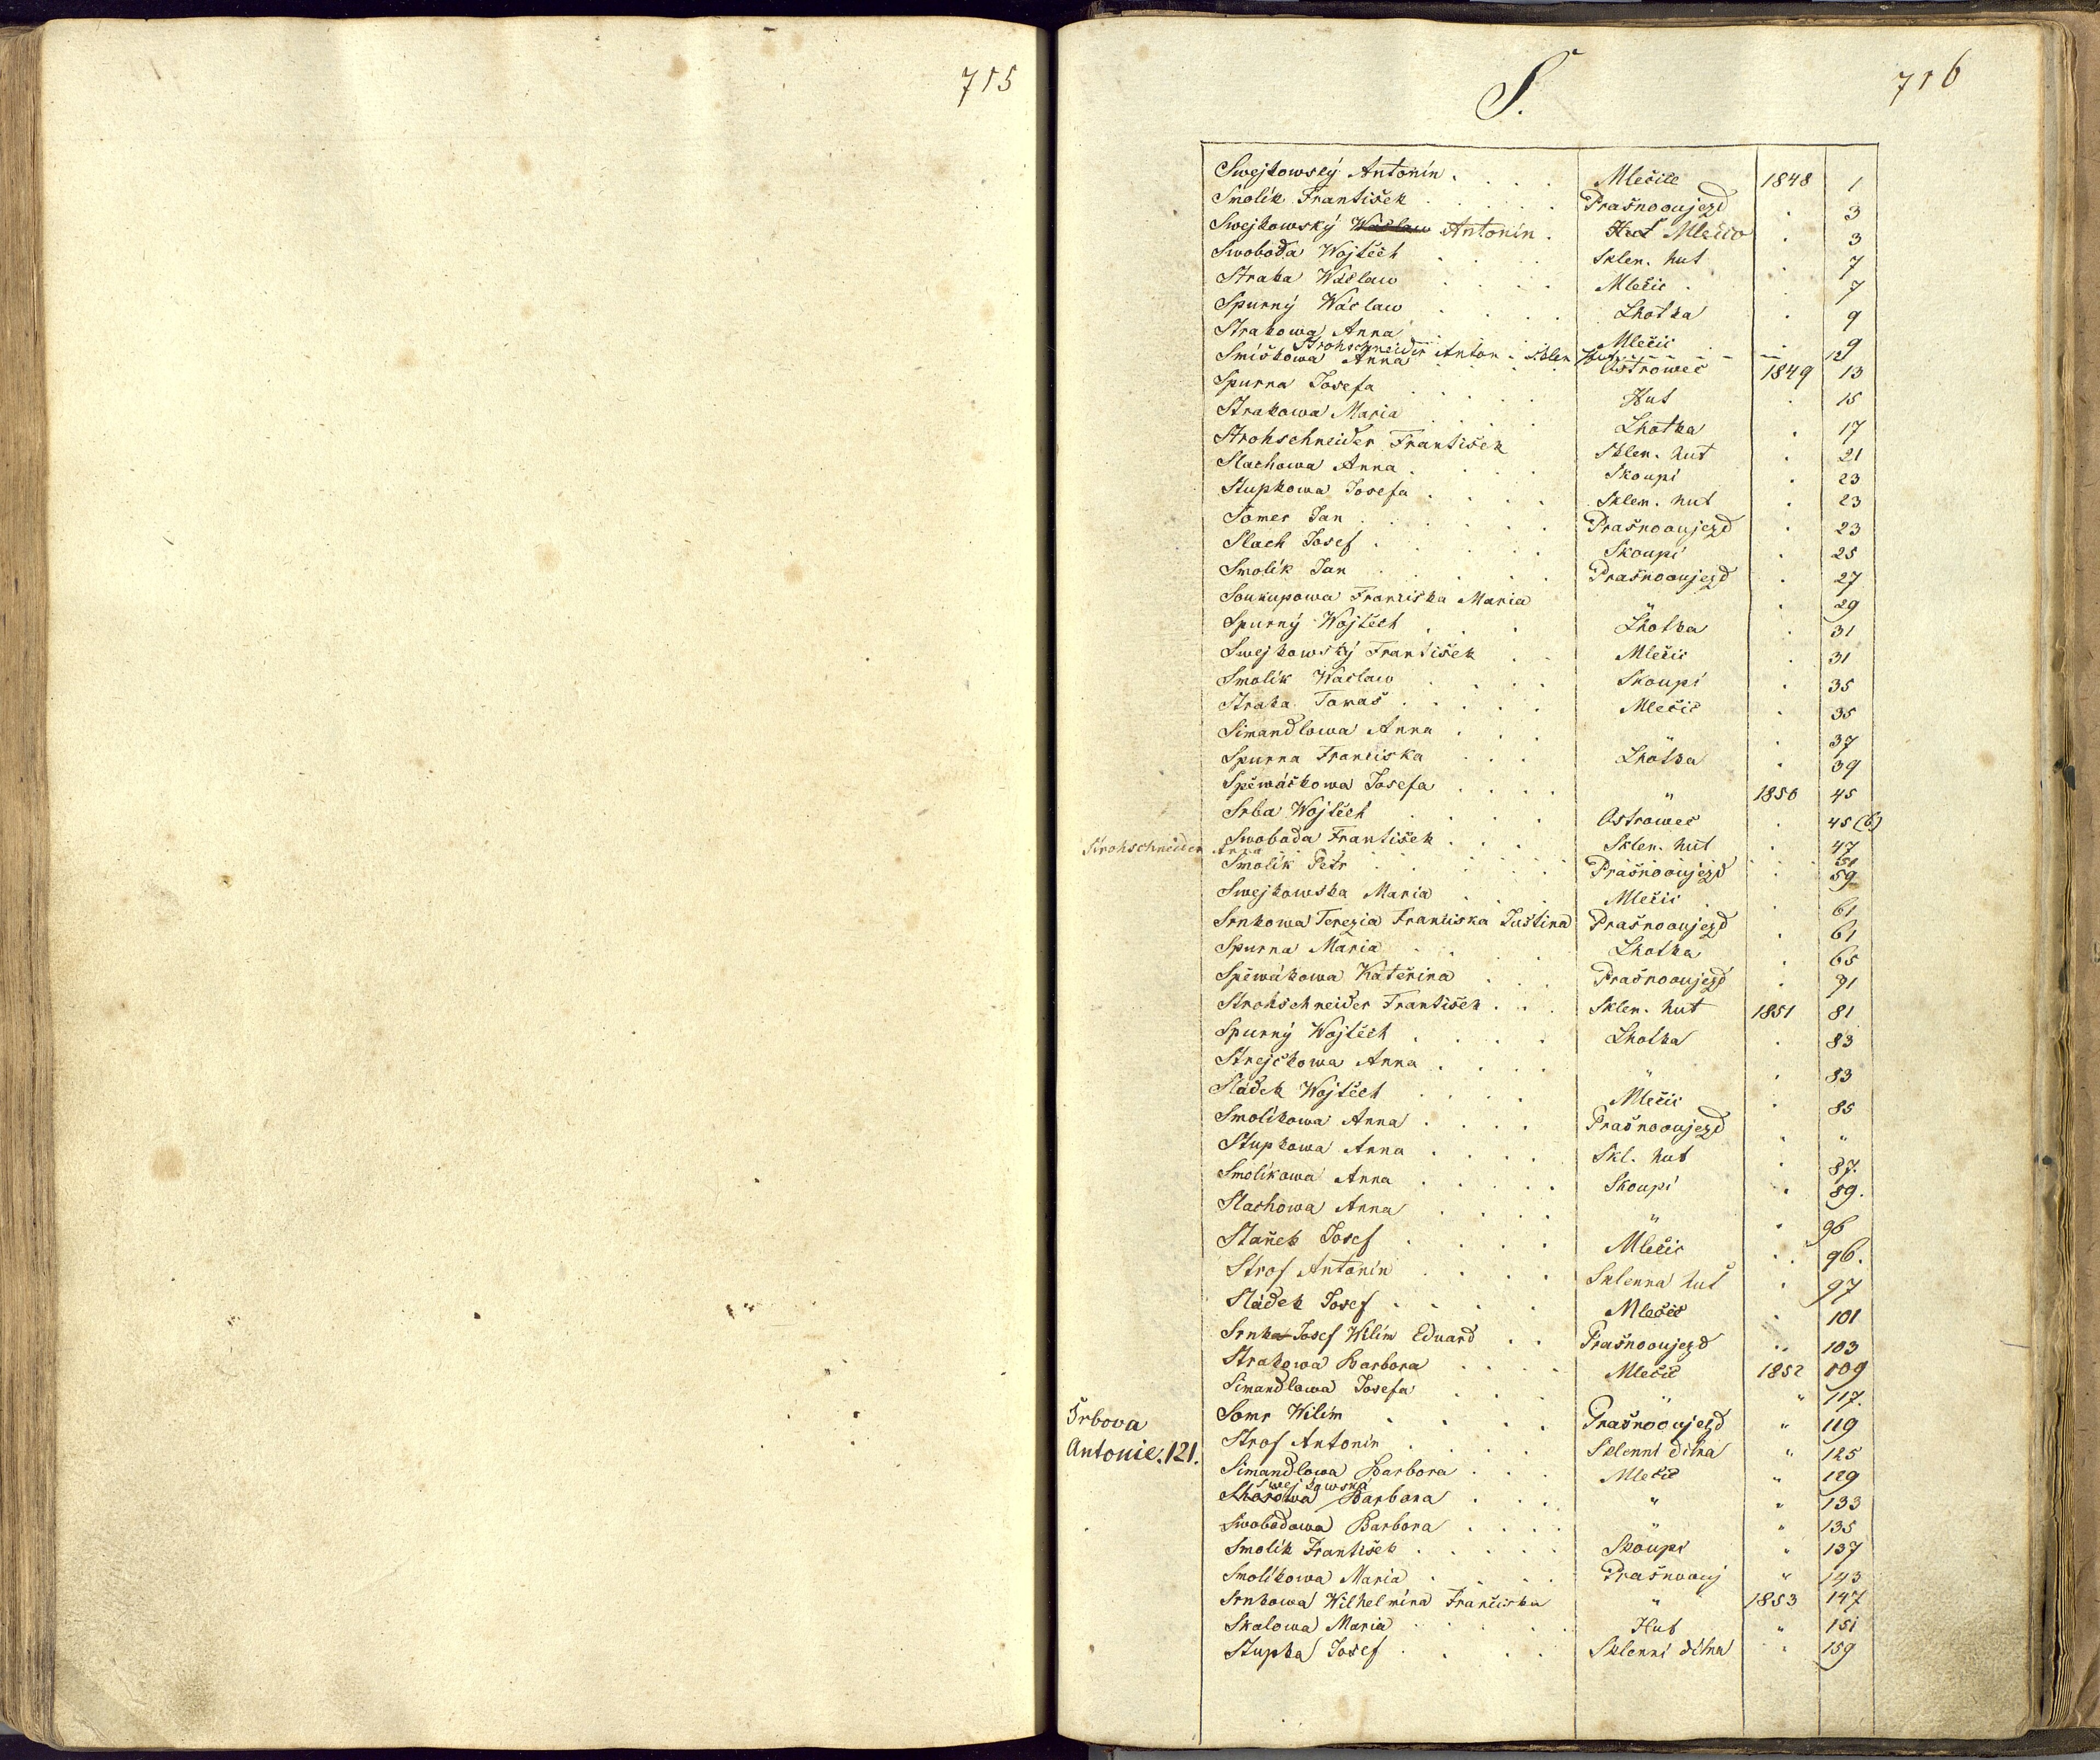 715
716
S.
Swejkowský Antonín. Mlečice 1848 1
Smolík František Prašnooujezd . 3
Swejkowský Wáclaw Antonín. Hut Mlečic . 3
Swoboda Wojtěch Sklen. hut . 7
Straka Wáclaw Mlečic . 7
Spurný Wáclaw Lhotka . 9
Strakowa Anna Mlečic . 9
Strohschneider Anton - Sklen Hut - - - - 12
Smíškowa Anna Ostrowec 1849 13
Spurna Josefa Hut . 15
Strakowa Maria Lhotka . 17
Strohschneider František Sklen. hut . 21
Slachowa Anna Skoupí . 23
Stupkowa Josefa Sklen. hut . 23
Somer Jan Prašnooujezd . 23
Slach Josef Skoupí . 25
Smolík Jan Prašnooujezd . 27
Soukupowa Franciska Maria " . 29
Spurný Wojtěch Lhotka . 31
Swejkowský František Mlečic . 31
Smolík Wáclaw Skoupí . 35
Straka Tomaš Mlečic . 35
Simandlowa Anna " . 37
Spurna Franciska Lhotka . 39
Spěwáčkowa Josefa " 1850 45
Srba Wojtěch Ostrowec . 45 (b)
Swoboda František Sklen. hut . 47
Strohschneider Anna . . . 51
Smolík Petr Prašnooujezd . 59
Swejkowska Maria Mlečic . 61
Srnkowa Terezia Franciska Justina Prašnooujezd . 61
Spurna Maria Lhotka . 65
Spěwákowa Kateřina Prašnooujezd . 71
Strohschneider František Sklen. hut 1851 81
Spurný Wojtěch Lhotka . 83
Strejčkowa Anna " . 83
Sládek Wojtěch Mlečic . 85
Smolikowa Anna Prašnooujezd . "
Stupkowa Anna Skl. hut . 87.
Smolikowa Anna Skoupí . 89.
Slachowa Anna " . 96
Staněk Josef Mlečic . 96.
Strof Antonín Sklenna huť . 97
Sládek Josef Mlečic . 101
Srnka Josef Wilím Eduard Prašnooujezd . 103
Strakowa Barbora Mlečic 1852 109
Simandlowa Josefa " " 117.
Somr Wilím Prašnooujezd " 119
Srbova
Antonie. 121.
Strof Antonín Sklenní dílna " 125
Simandlowa Barbora Mlečic " 129
Swejkowská
Barbora " " 133
Swobodowa Barbora " " 135
Smolík František Skoupí " 137
Smolíkowa Maria Prašnoouj " 143
Srnkowa Wilhelmina Franciska " 1853 147
Skalowa Maria Hut " 151
Stupka Josef Sklenní dílna " 159